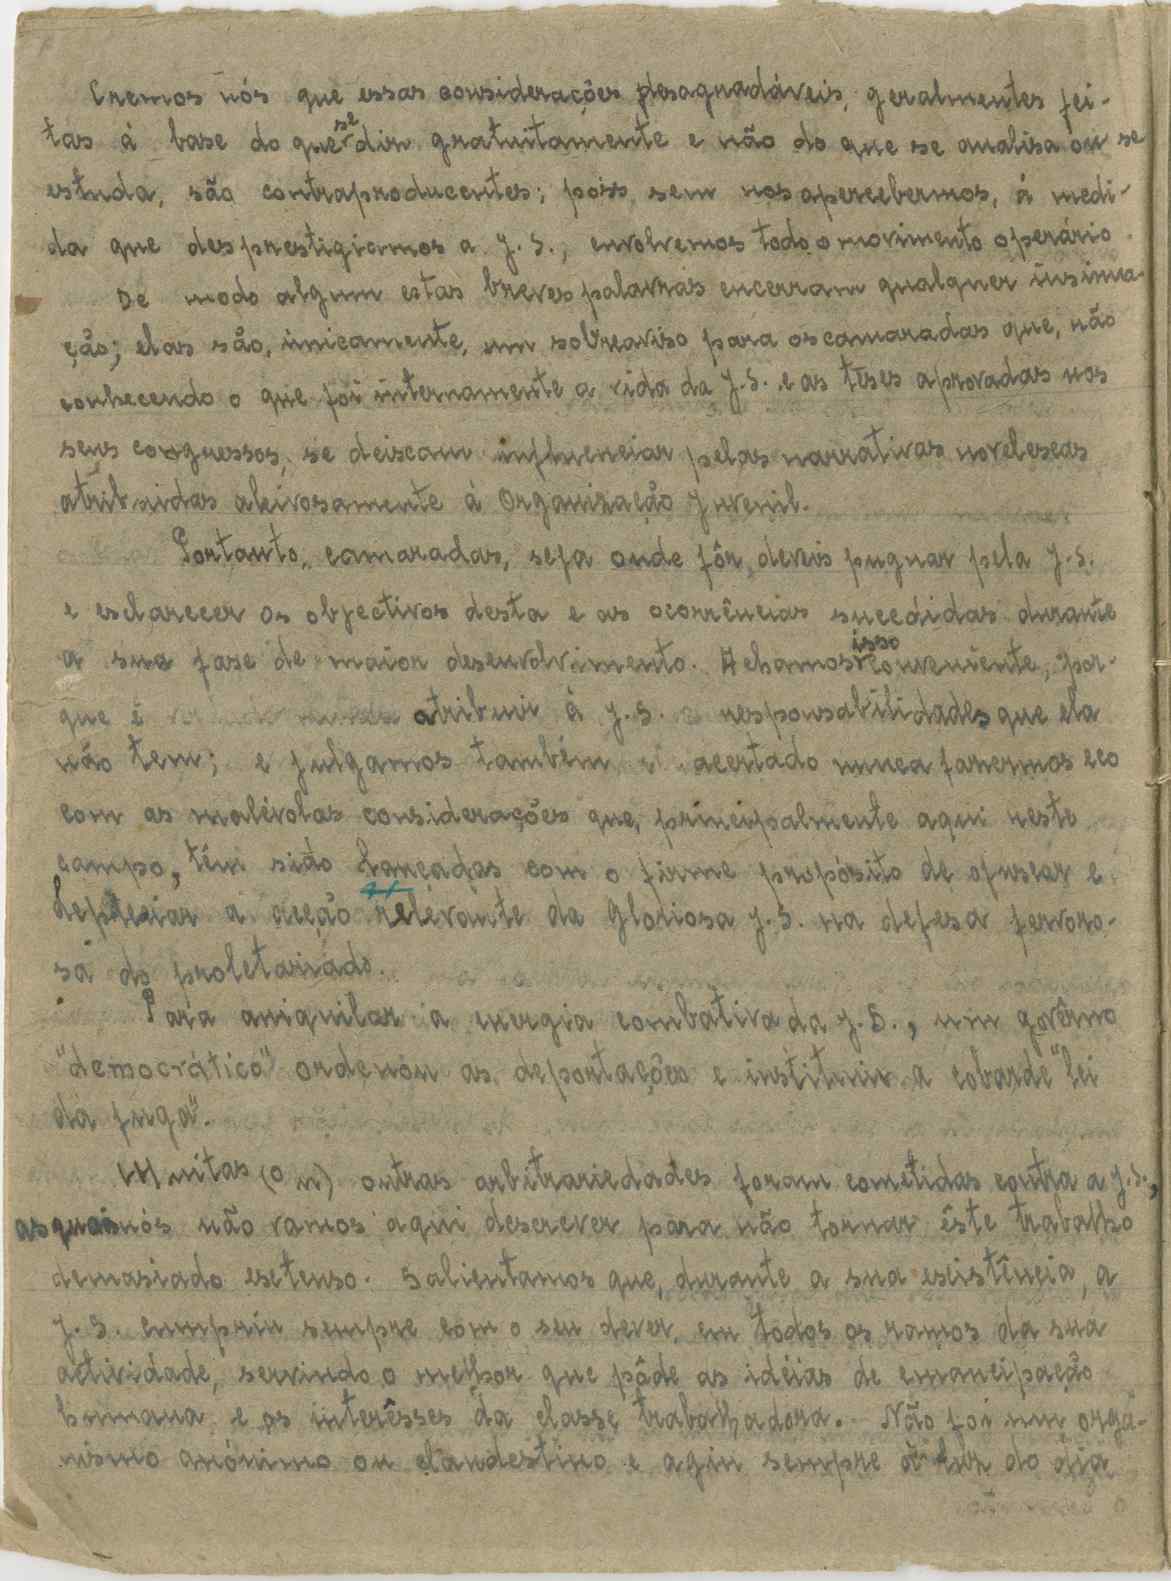 Cremos nós que essas considerações desagradáveis, geralmentes fei-
tas á base do que se diz gratuitamente e não do que se analisa ou se
estuda, são contraproducentes; pois, sem nos apercebermos, á medi-
da que desprestigiamos a J. S., envolvemos todo o movimento operário.
De modo algum estas breves palavras encerram qualquer insinua-
ção; elas são, únicamente, um sobreaviso para os camaradas que, não
conhecendo o que foi internamente a vida da J. S. e as tеses aprovadas nos
seus congressos, se deixam influenciar pelas narrativas novelescas
atribuidas aleivosamente á Organização Juvenil.
Portanto, camaradas, seja onde fôr, deveis pugnar pela J. S.
e esclarecer os objectivos desta e as ocorrências sucedidas durante
a sua fase de maior desenvolvimento. Achamos isso conveniente, por-
que é atribuir á J. S. responsabilidades que ela
não tem; e julgamos também acertado nunca fazermos eco
com as malévolas considerações que, principalmente aqui neste
campo, têm sido lançadas com o firme propósito de ofuscar e
depreciar a acção relevante da gloriosa J. S. na defesa fervoro-
sa do proletariado.
Para aniquilar a energia combativa da J. S., um govêrno
"democrático" ordenou as deportações e instituiu a cobarde "lei
da fuga".
Muitas (o u) outras arbitrariedades foram cometidas contra a J. S.,
as quais nós não vamos aqui descrever para não tornar êste trabalho
demasiado extenso. Salientamos que, durante a sua existência, a
J. S. cumpriu sempre com o seu dever, em todos os ramos da sua
actividade, servindo o melhor que pôde as idéias de emancipação
humana e os interêsses da classe trabalhadora. Não foi um orga-
nismo anónimo ou clandestino e agiu sempre á luz do dia